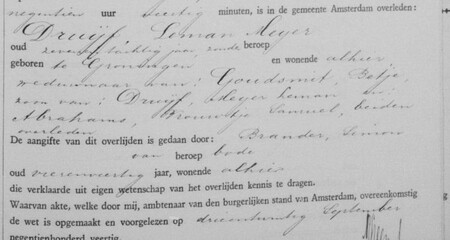 negentien uur veertig minuten, is in de gemeente Amsterdam overleden:
Druijf, Leman Meyer
oud zevenentachtig jaar, zonder beroep
geboren te Groningen en wonende alhier,
weduwnaar van: Goudsmit, Betje,
zoon van: Druijf, Meyer Leman en
Abrahams, Vrouwtje Samuel, beiden
overleden
De aangifte van dit overlijden is gedaan door: Brander, Simon
van beroep bode
oud vierenveertig jaar, wonende alhier
die verklaarde uit eigen wetenschap van het overlijden kennis te dragen.
Waarvan akte, welke door mij, ambtenaar van den burgerlijken stand van Amsterdam, overeenkomstig
de wet is opgemaakt en voorgelezen op drieentwintig September
negentienhonderd veertig.